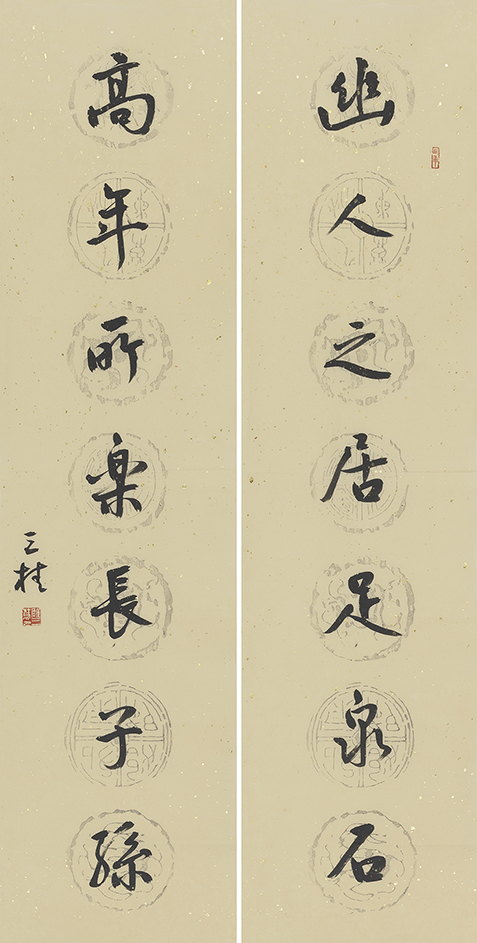 幽人之居足泉石
高年所楽長子孫
三桂